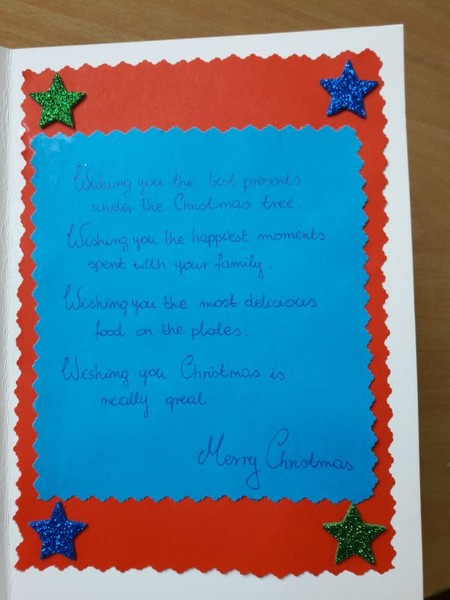 Wishing you the best presents
under the Christmas tree
Wishing you the happiest moments
spent with your family.
Wishing you the most delicious
food on the plates.
Wishing you Christmas is
really great.
Merry Christmas